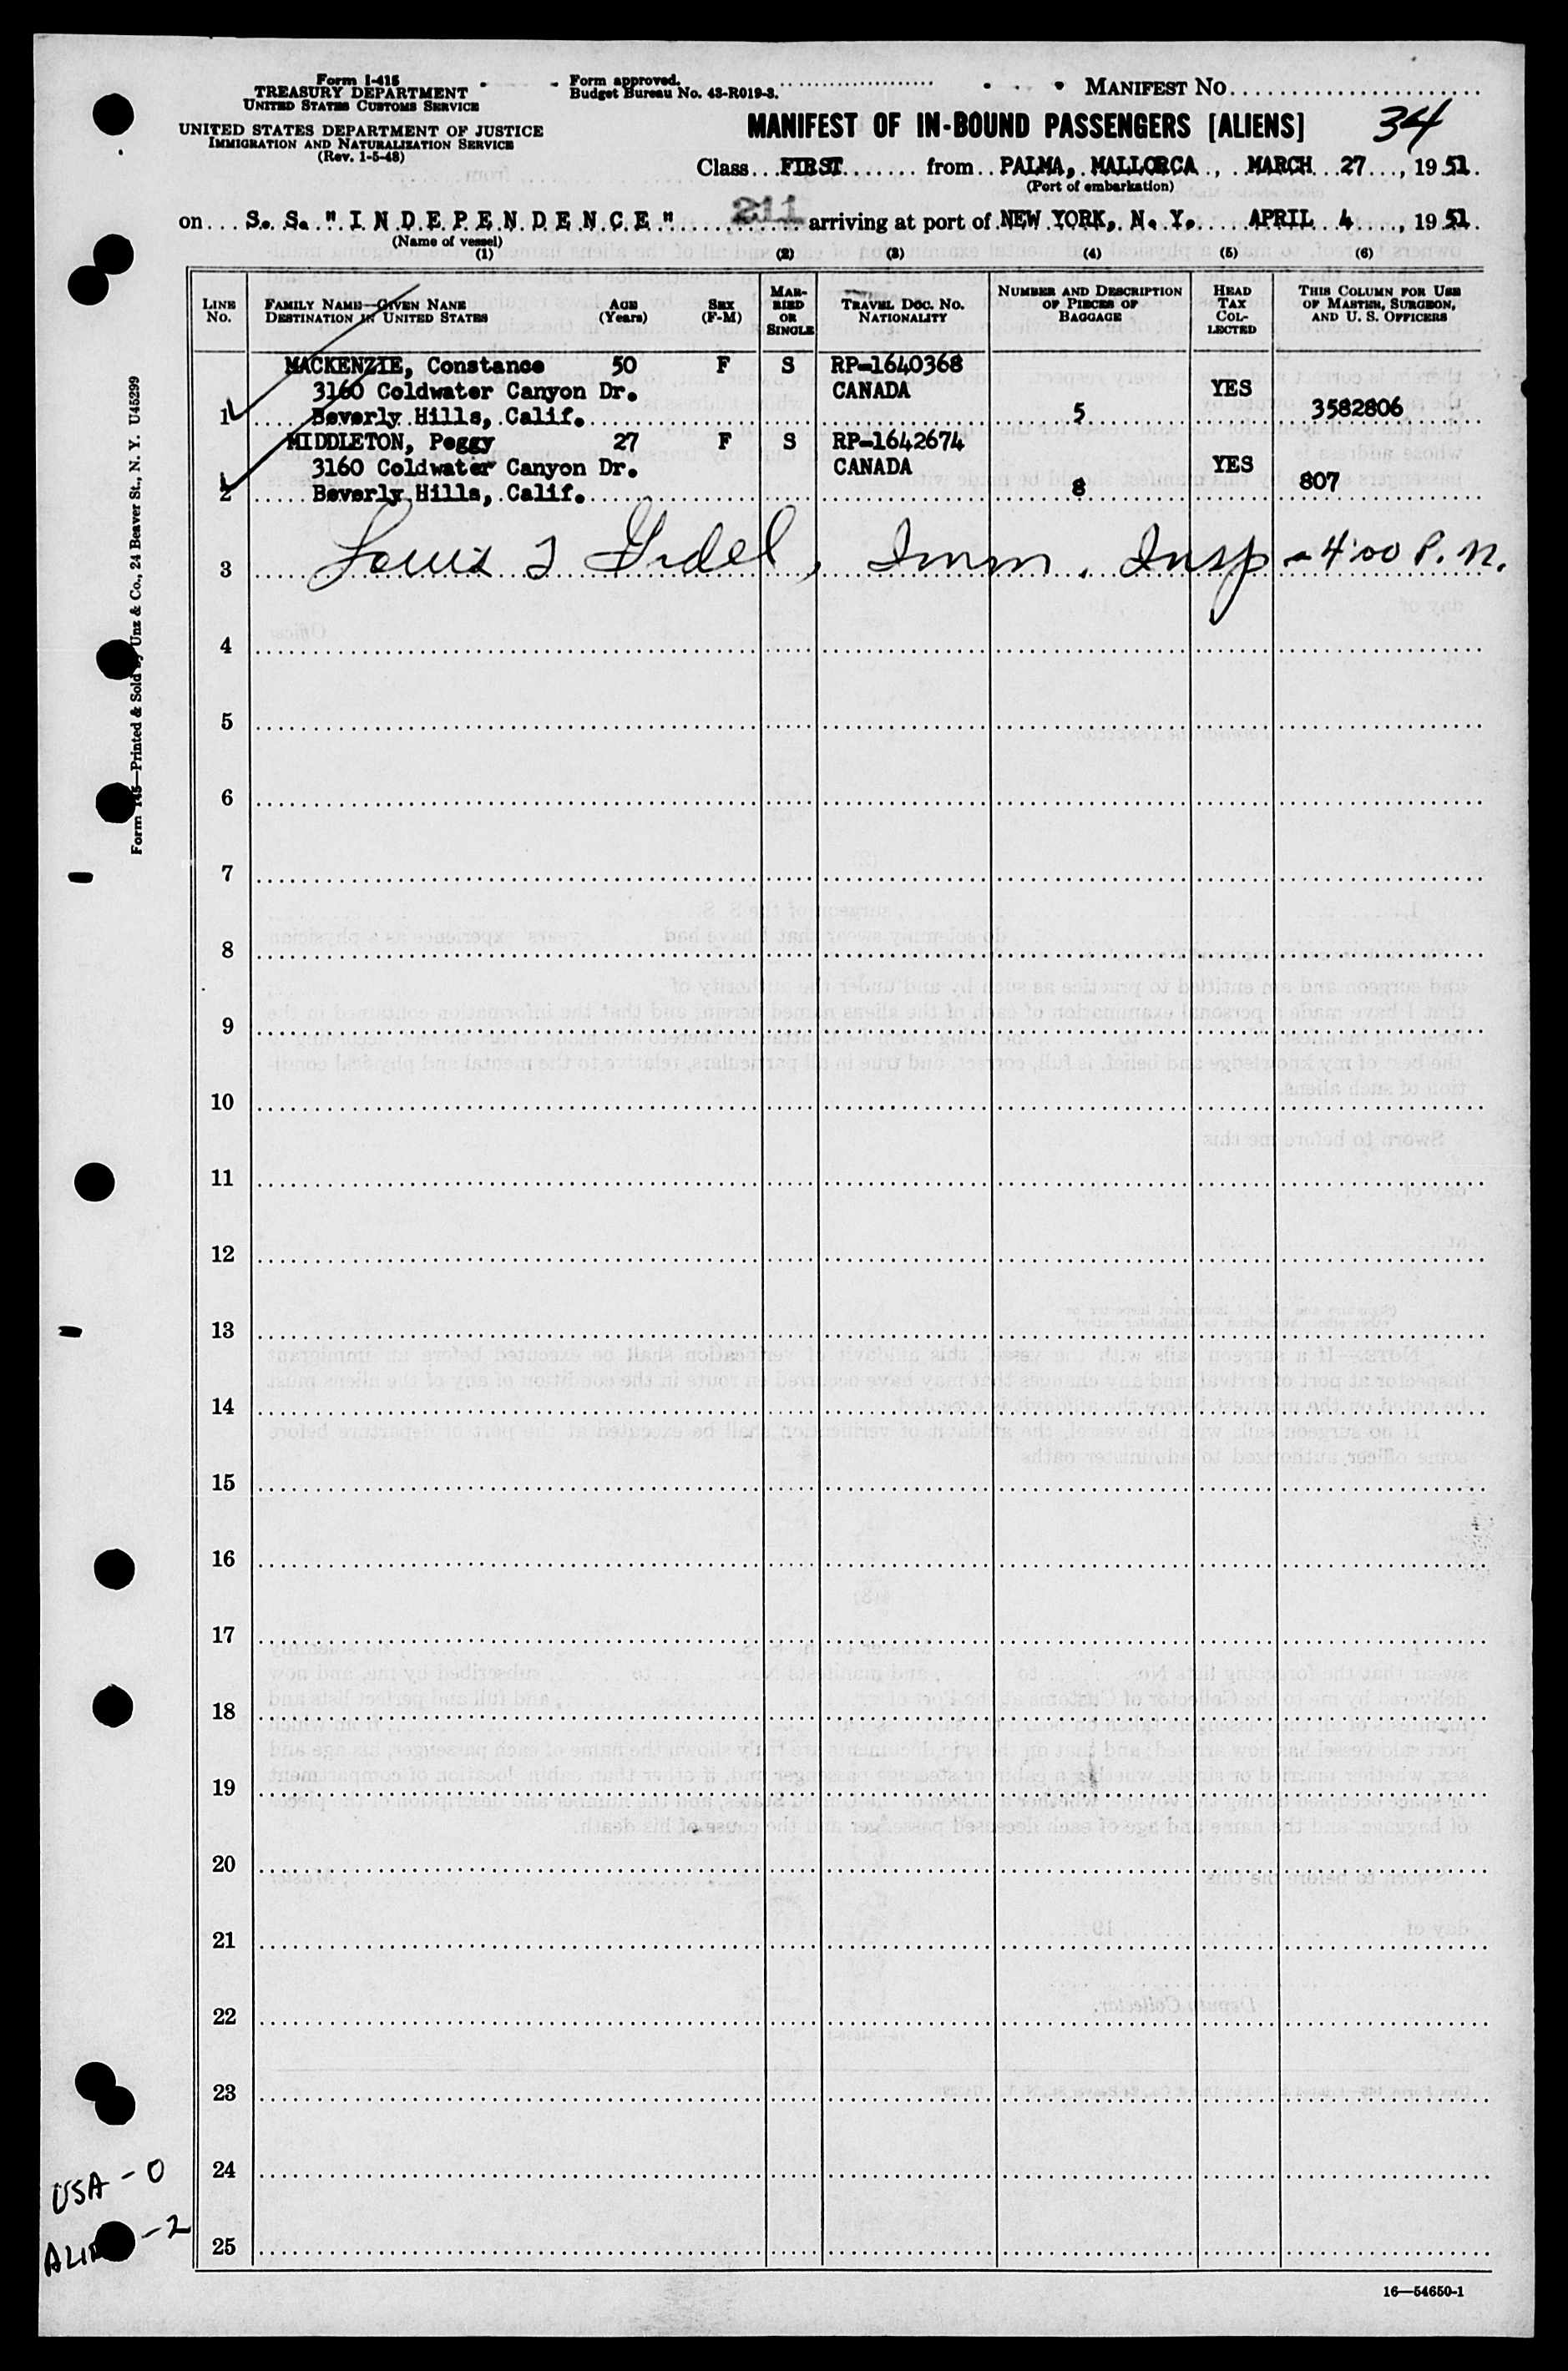 Form I-415
TREASURY DEPARTMENT
UNITED STATES CUSTOMS SERVICE
UNITED STATES DEPARTMENT OF JUSTICE
IMMIGRATION AND NATURALIZATION SERVICE
(Rev. 1-5-48)
Form approved.
Budget Bureau No. 43-R019-3.
MANIFEST NO.
34
MANIFEST OF IN-BOUND PASSENGERS [ALIENS]
Class FIRST from PALMA, MALLORCA, MARCH 27, 1951.
(Port of embarkation)
on S. S. "INDEPENDENCE" 211 arriving at port of NEW YORK, N. Y. APRIL 4, 1951.
(Name of vessel)
(1) (2) (3) (4) (5) (6)
LINE NO.
FAMILY NAME—GIVEN NAME DESTINATION IN UNITED STATES
AGE (Years)
SEX (F-M)
MARRIED OR SINGLE
TRAVEL DOC. NO. NATIONALITY
NUMBER AND DESCRIPTION OF PIECES OF BAGGAGE
HEAD TAX COLLECTED
THIS COLUMN FOR USE OF MASTER, SURGEON, AND U. S. OFFICERS
MACKENZIE, Constance 50 F S RP-1640368
3160 Coldwater Canyon Dr. CANADA YES
1 Beverly Hills, Calif. 5 3582806
MIDDLETON, Peggy 27 F S RP-1642674
3160 Coldwater Canyon Dr. CANADA YES
2 Beverly Hills, Calif. 8 807
3 Louis Imm. Insp - 4:00 P.M.
4
5
6
7
8
9
10
11
12
13
14
15
16
17
18
19
20
21
22
23
24
25
USA - 0
- 2
16—54650-1
Form 145—Printed & Sold by Unz & Co., 24 Beaver St., N. Y. U45299